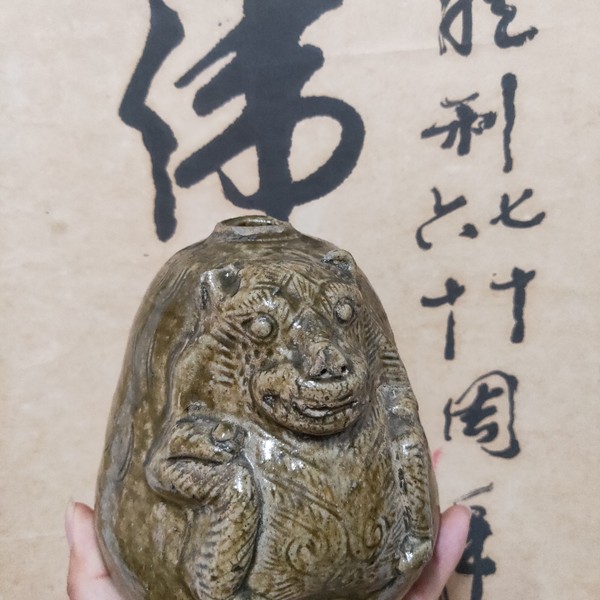 胜利七十六十周年
伟